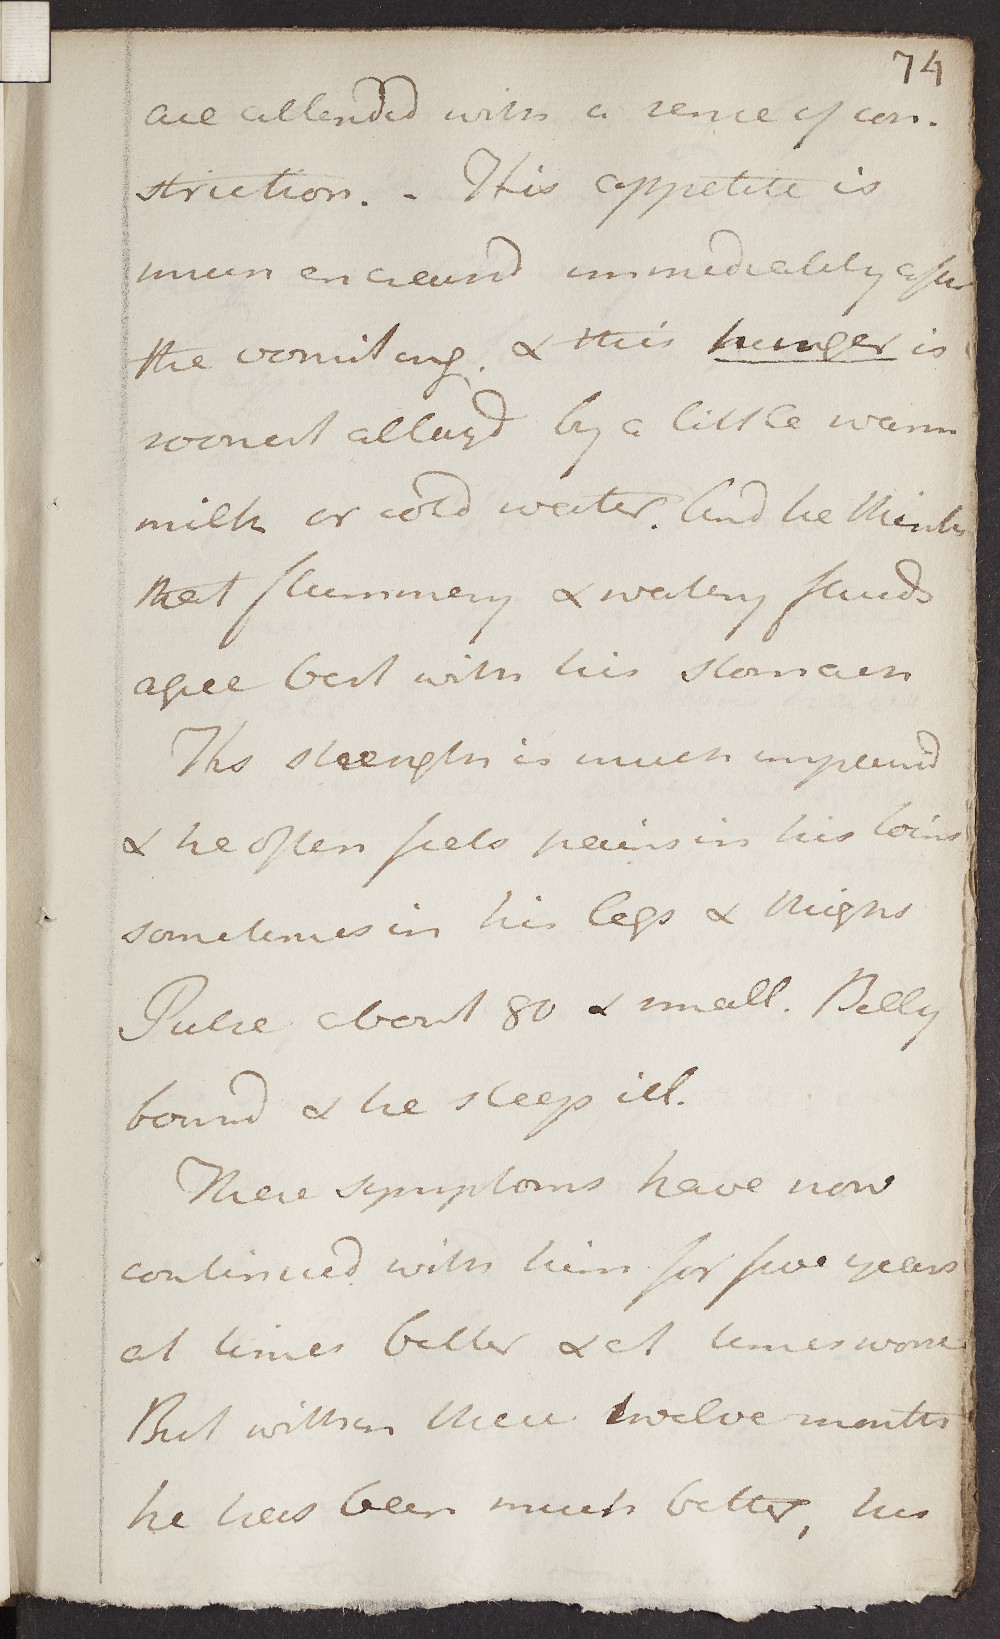 74
are attended with a sense of con-
striction. - His appetite is
much encreased immediately after
the vomiting. & this hunger is
soonest allayd by a little warm
milk or cold water. And he thinks
that flummery & watery fluids
agree best with his stomach
His strength is much impaird
& he often feels pains in his loins
sometimes in his legs & thighs
Pulse about 80 & small. Belly
bound & he sleeps ill.
These symptoms have now
continued with him for five years
at times better & at times worse
But within these twelve months
he has been much better, his